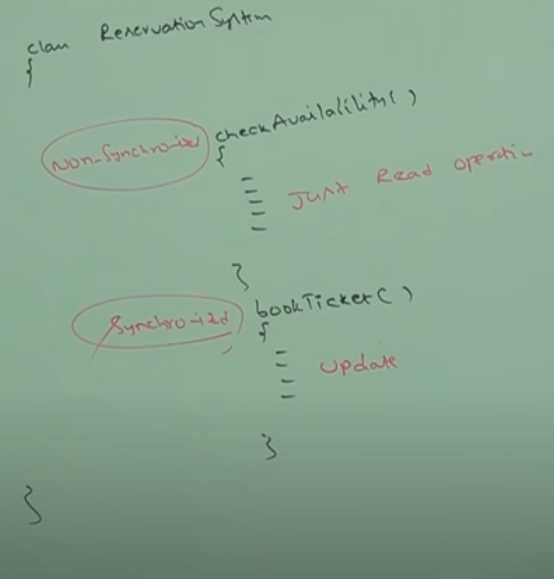 class ReservationSystem
{
Non-Synchronized checkAvailability( )
{
Just Read operation
}
Synchronized bookTicket( )
{
update
}
}